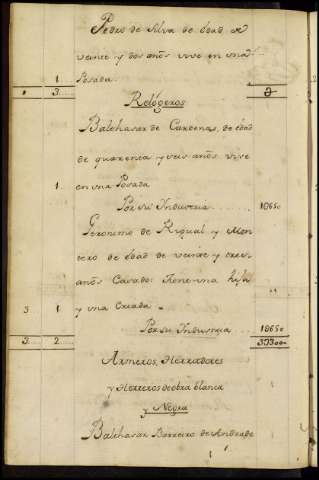 Pedro de Silva de edad de
veinte y dos años vive en una
1 Posada
3
Relogeros
Balthasar de Cardenas, de edad
de quarenta y seis años vive
1 en una Posada
Por su Industria 1865o
Geronimo de Rigual y Mon
tero de edad de veinte y tres
años Casado: tiene una hija
3 1 y una Criada
Por su Industria 1865o
3 2 3730o
Armeros, Herradores
y Herreros de obra blanca
y Negra
Balthasar Borreiro de Andrade